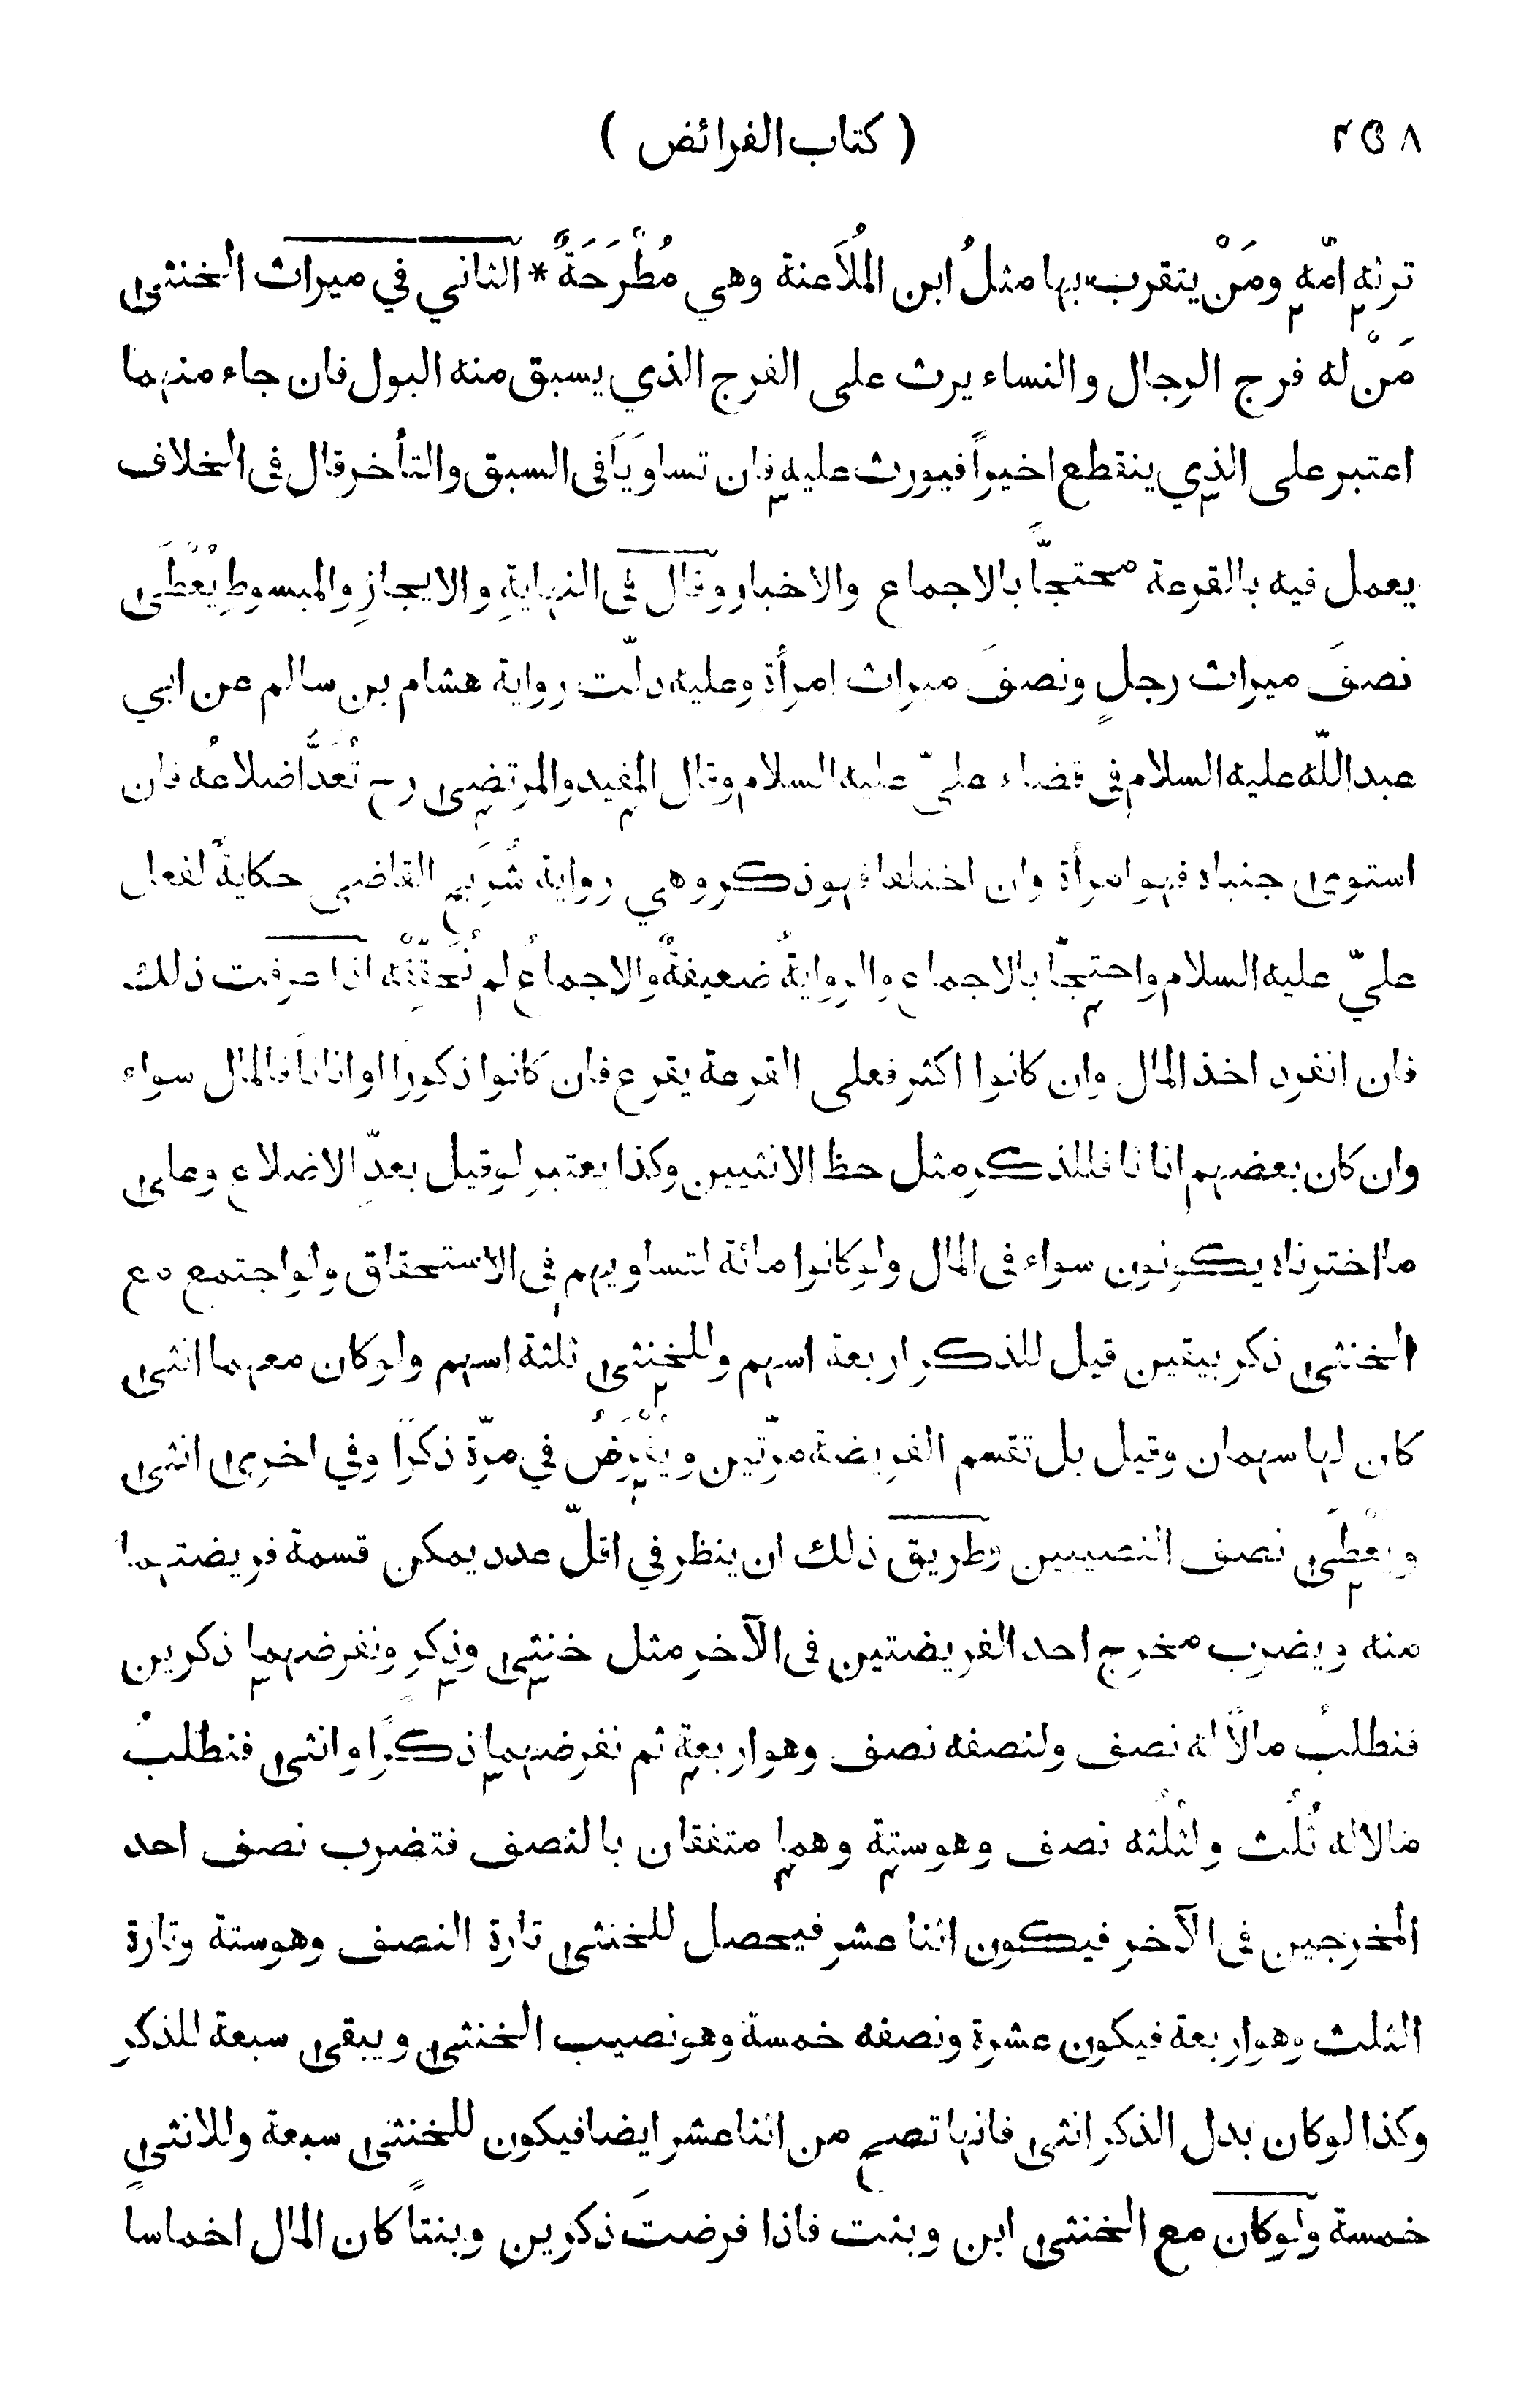 ٢٥٨ ( كتاب الفرائض )
ترثه امّه ومَنْ يتقرب بها مثلُ ابن المُلاَعنة وهي مُطْرَحَةٌ * الثاني في ميراث الخنثى
مَنْ له فرج الرجال والنساء يرث على الفرج الذي يسبق منه البول فان جاء منهما
اعتبر على الذي ينقطع اخيراً فيورث عليه فان تساوَيَا في السبق والتأخر قال في الخلاف
يعمل فيه بالقرعة محتجّاً بالاجماع والاخبار وقال في النهايةِ والايجازِ والمبسوطِ يُعْطَى
نصفَ ميراث رجلٍ ونصفَ ميراث امرأة وعليه دلّت رواية هشام بن سالم عن ابي
عبد اللّه عليه السلام في قضاء عليّ عليه السلام وقال المفيد والمرتضى رح تُعَدُّ اضلاعُه فان
استوى جنباه فهو امرأة وان اختلفا فهو ذكر وهي رواية شُرَيح القاضي حكايةً لفعل
عليّ عليه السلام واحتجّا بالاجماع والروايةُ ضعيفةٌ والاجماعُ لم نُحَقِّقْه اذا عرفت ذلك
فان انفرد اخذ المال وان كانوا اكثر فعلى القرعة يقرع فان كانوا ذكوراً او اناثاً فالمال سواء
وان كان بعضهم اناثا فللذكر مثل حظ الانثيين وكذا يعتبر لو قيل بعدِّ الاضلاع وعلى
ما اخترناه يكونون سواء في المال ولو كانوا مائة لتساويهم في الاستحقاق ولو اجتمع مع
الخنثى ذكر بيقين قيل للذكر اربعة اسهم وللخنثى ثلثة اسهم ولو كان معهما انثى
كان لها سهمان وقيل بل تقسم الفريضة مرّتين ويُفْرَضُ في مرّة ذكراً وفي اخرى انثى
ويُعْطَى نصف النصيبين وطريق ذلك ان ينظر في اقلّ عدد يمكن قسمة فريضتهما
منه ويضرب مخرج احد الفريضتين في الآخر مثل خنثى وذكر ونفرضهما ذكرين
فنطلبُ مالاً له نصف ولنصفه نصف وهو اربعة ثم نفرضهما ذكراً وانثى فنطلبُ
مالا له ثُلُث ولثُلُثه نصف وهو ستة وهما متفقان بالنصف فتضرب نصف احد
المخرجين في الآخر فيكون اثنا عشر فيحصل للخنثى تارة النصف وهو ستة وتارة
الثلث وهو اربعة فيكون عشرة ونصفه خمسة وهو نصيب الخنثى ويبقى سبعة للذكر
وكذا لو كان بدل الذكر انثى فانها تصح من اثنا عشر ايضا فيكون للخنثى سبعة وللانثى
خمسة ولو كان مع الخنثى ابن وبنت فاذا فرضتَ ذكرين وبنتاً كان المال اخماساً